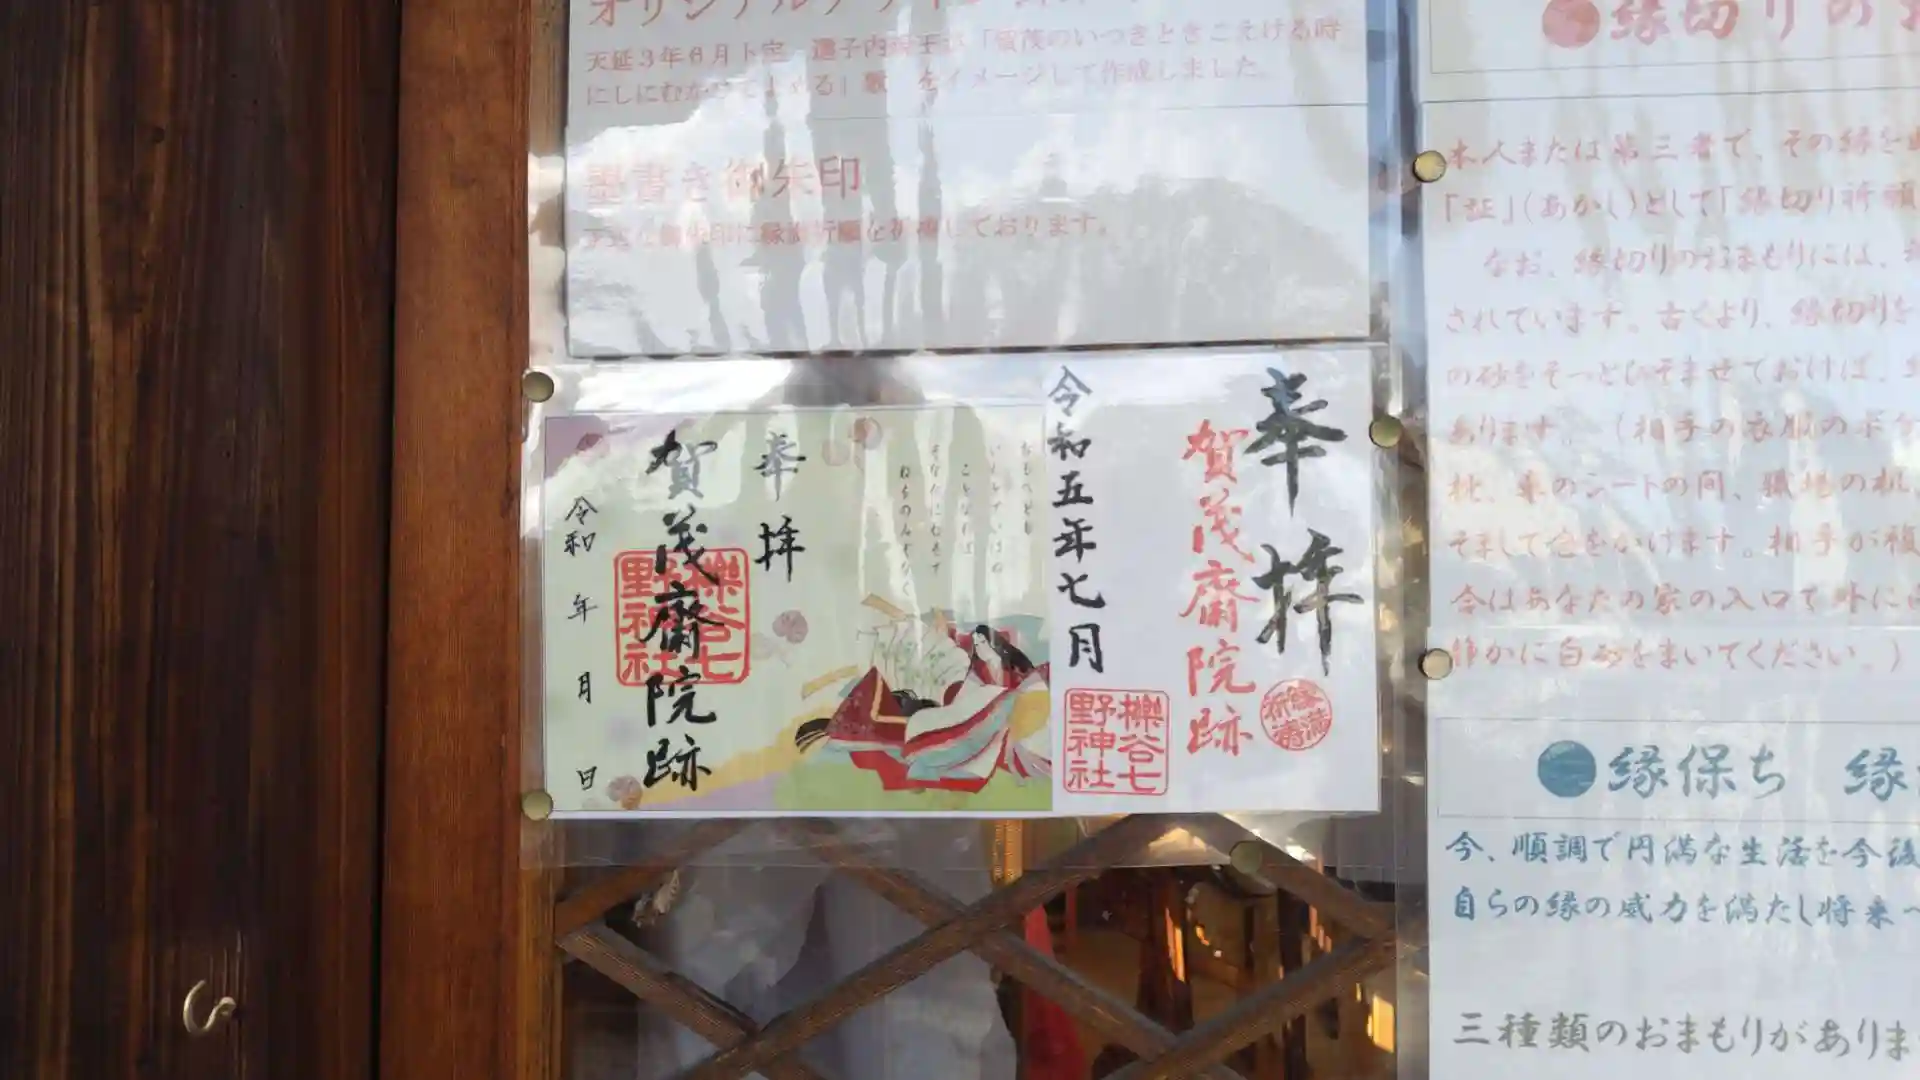 天延3年6月卜定 選子内親王が「賀茂のいつきときこえける時
にしにむかひてよめる」歌 をイメージして作成しました。
墨書き御朱印
御朱印に縁満祈願を祈祷しております。
奉拝
賀茂齋院跡
櫟谷七
野神社
令和 年 月 日
おもへども
いむとていはぬ
ことなれば
そなたにむきて
ねをのみぞなく
奉拝
賀茂齋院跡
縁満
祈祷
令和五年七月
櫟谷七
野神社
縁切りのお
本人または第三者で、その縁を
「証」(あかし)として「縁切り祈願
なお、縁切りのおまもりには、
されています。古くより、縁切りを
の砂をそっとひそませておけば、
あります。(相手の衣服のポケ
枕、車のシートの間、職場の机
そして念をかけます。相手が
合はあなたの家の入口で外に
静かに白砂をまいてください。)
縁保ち 縁
今、順調で円満な生活を今後
自らの縁の威力を満たし将来へ
三種類のおまもりがありま